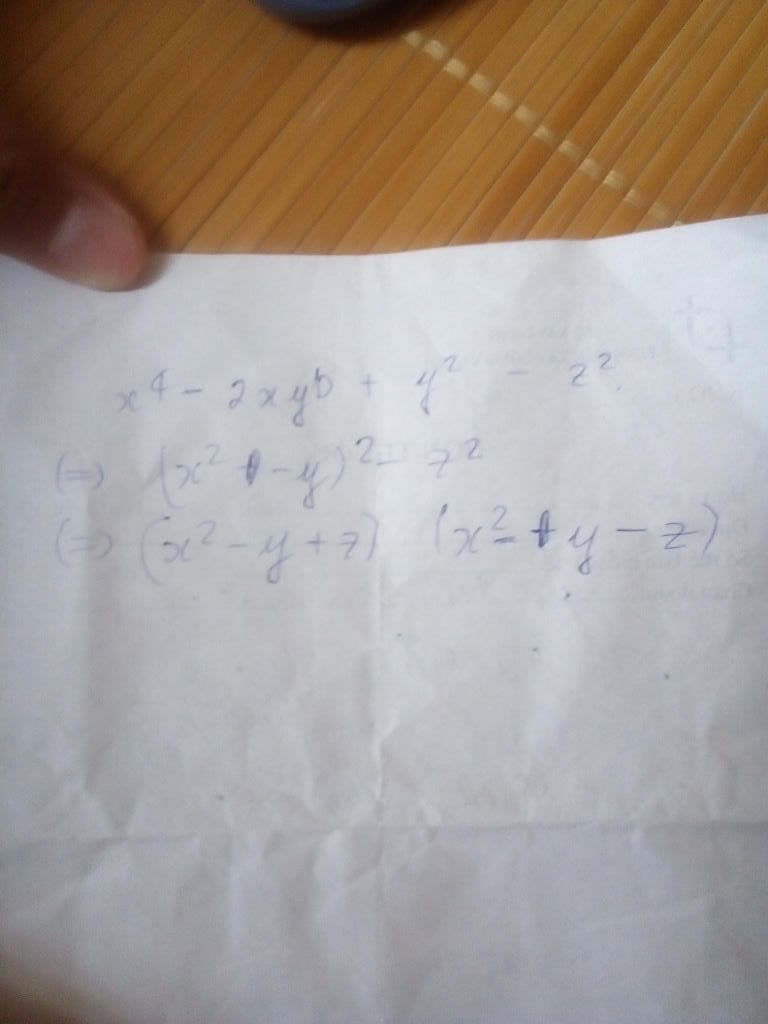 x⁴ - 2xy + y² - z²
(=) (x² - y)² - z²
(=) (x² - y + z) (x² - y - z)